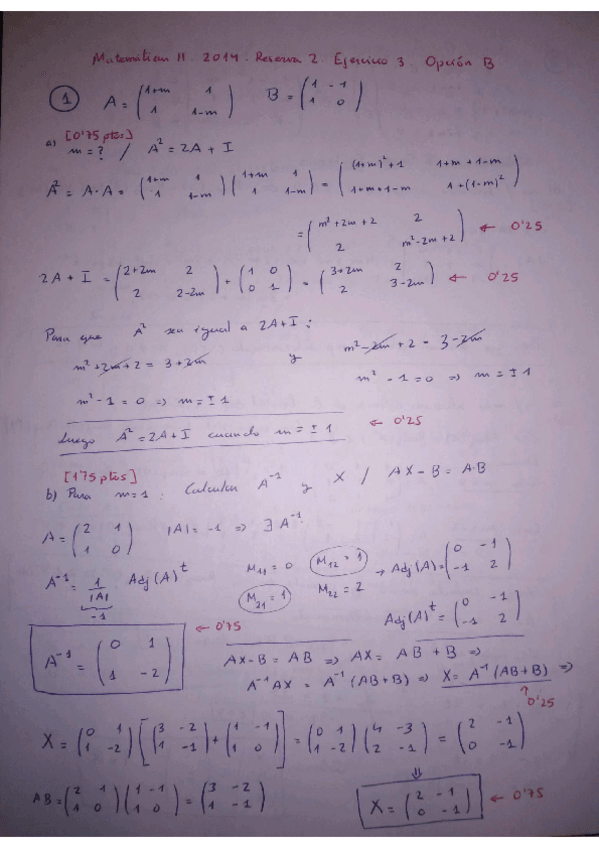 Matemáticas II. 2014. Reserva 2. Ejercicio 3. Opción B
① A = (1+m 1 ; 1 1-m) B = (1 -1 ; 1 0)
a) [0'75 ptos]
m = ? / A² = 2A + I
A² = A·A = (1+m 1 ; 1 1-m) (1+m 1 ; 1 1-m) = ((1+m)²+1 1+m+1-m ; 1+m+1-m 1+(1-m)²)
= (m²+2m+2 2 ; 2 m²-2m+2) ← 0'25
2A + I = (2+2m 2 ; 2 2-2m) + (1 0 ; 0 1) = (3+2m 2 ; 2 3-2m) ← 0'25
Para que A² sea igual a 2A+I:
m²+2m+2 = 3+2m y m²-2m+2 = 3-2m
m²-1=0 ⇒ m=±1 m²-1=0 ⇒ m=±1
Luego A²=2A+I cuando m=±1 ← 0'25
[1'75 ptos]
b) Para m=1: Calcular A⁻¹ y X / AX-B = AB
A = (2 1 ; 1 0) |A| = -1 ⇒ ∃ A⁻¹
A⁻¹ = 1/|A| Adj(A)ᵗ
-1
M₁₁ = 0 M₁₂ = 1
M₂₁ = 1 M₂₂ = 2
→ Adj(A) = (0 -1 ; -1 2)
Adj(A)ᵗ = (0 -1 ; -1 2)
A⁻¹ = (0 1 ; 1 -2) ← 0'75
AX-B = AB ⇒ AX = AB + B ⇒
A⁻¹AX = A⁻¹(AB+B) ⇒ X = A⁻¹(AB+B) ⇒
↑ 0'25
X = (0 1 ; 1 -2) [(3 -2 ; 1 -1) + (1 -1 ; 1 0)] = (0 1 ; 1 -2) (4 -3 ; 2 -1) = (2 -1 ; 0 -1)
⇓
AB = (2 1 ; 1 0) (1 -1 ; 1 0) = (3 -2 ; 1 -1)
X = (2 -1 ; 0 -1) ← 0'75